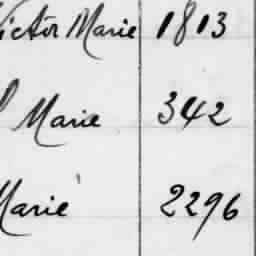 Victor Marie 1813
Marie 342
Marie 2296